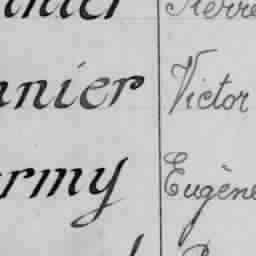 Pierre
nnier Victor
rmy Eugène